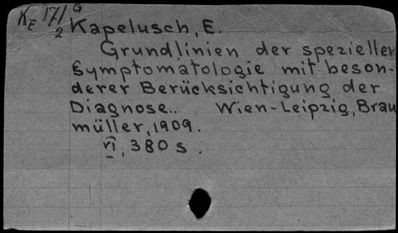 KE 171/2 G
Kapelusch, E.
Grundlinien der speziellen
Symptomatologie mit beson-
derer Berücksichtigung der
Diagnose... Wien-Leipzig, Brau
müller, 1909.
VI, 380 s.